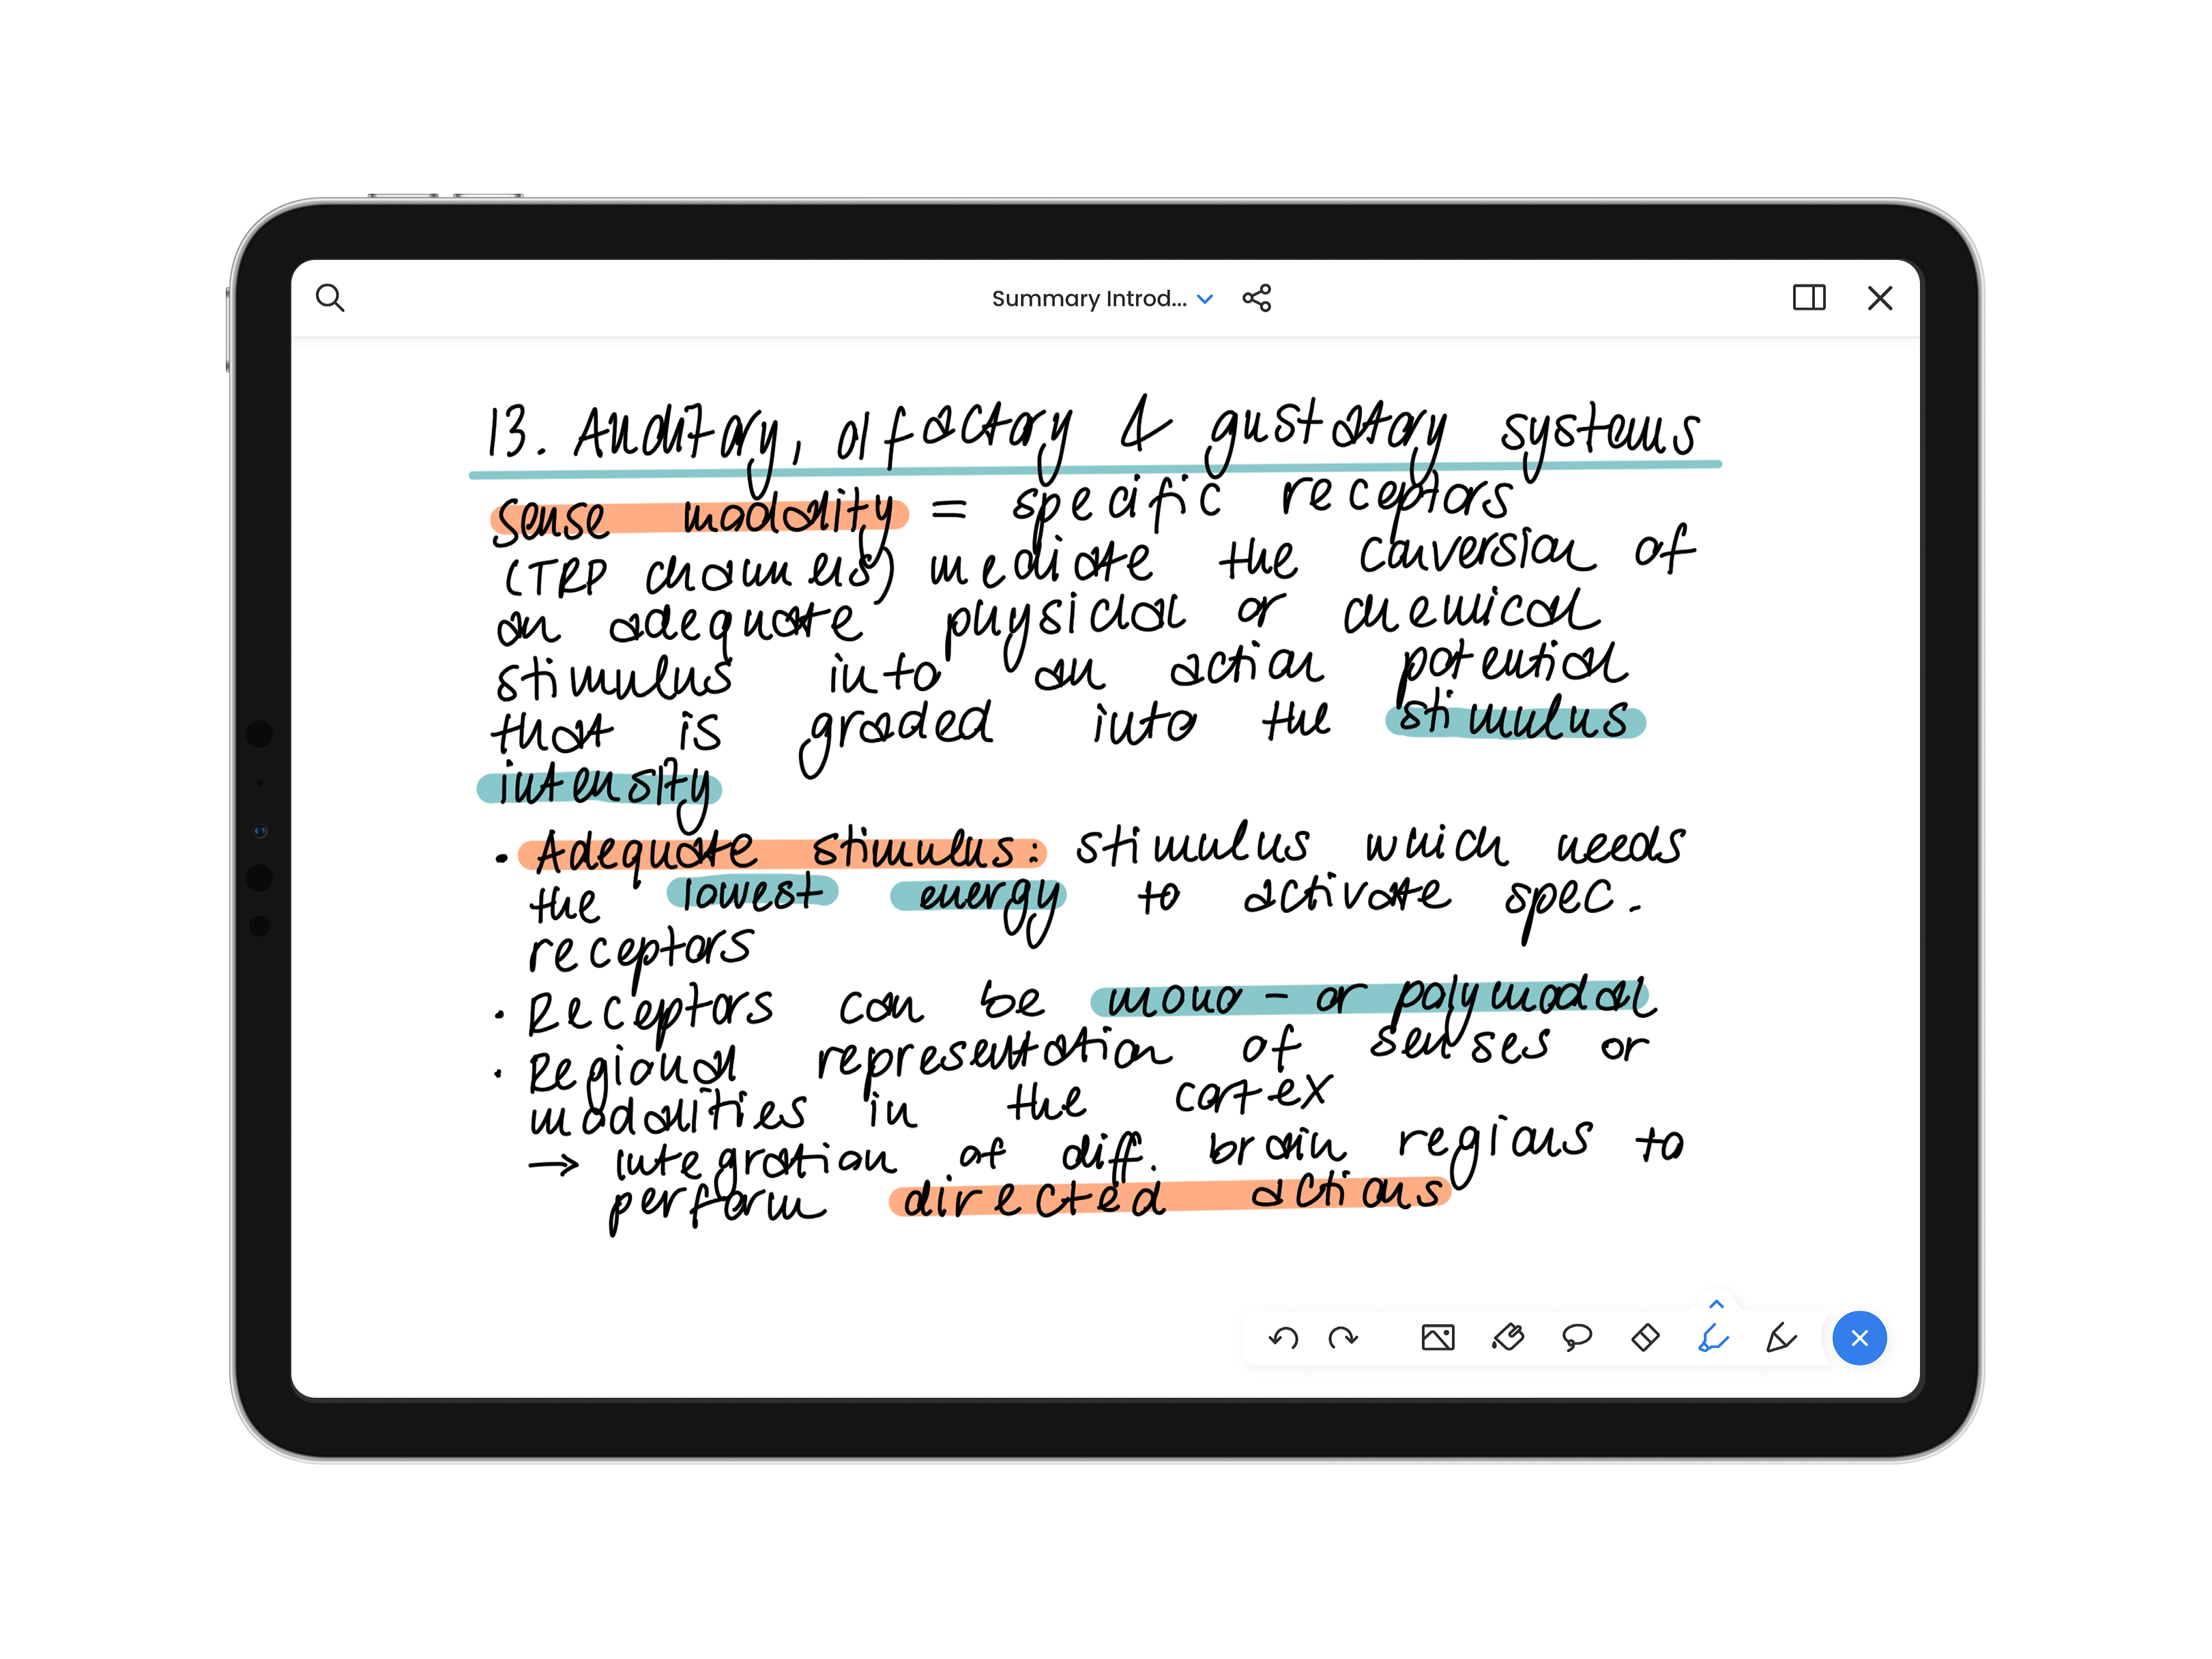 Summary Introd...
13. Auditory, olfactory & gustatory systems
sense modality = specific receptors
(TRP channels) mediate the conversion of
an adequate physical or chemical
stimulus into an action potential
that is graded into the stimulus
intensity
• Adequate stimulus: stimulus which needs
the lowest energy to activate spec.
receptors
• Receptors can be mono- or polymodal
• Regional representation of senses or
modalities in the cortex
→ integration of diff. brain regions to
perform directed actions